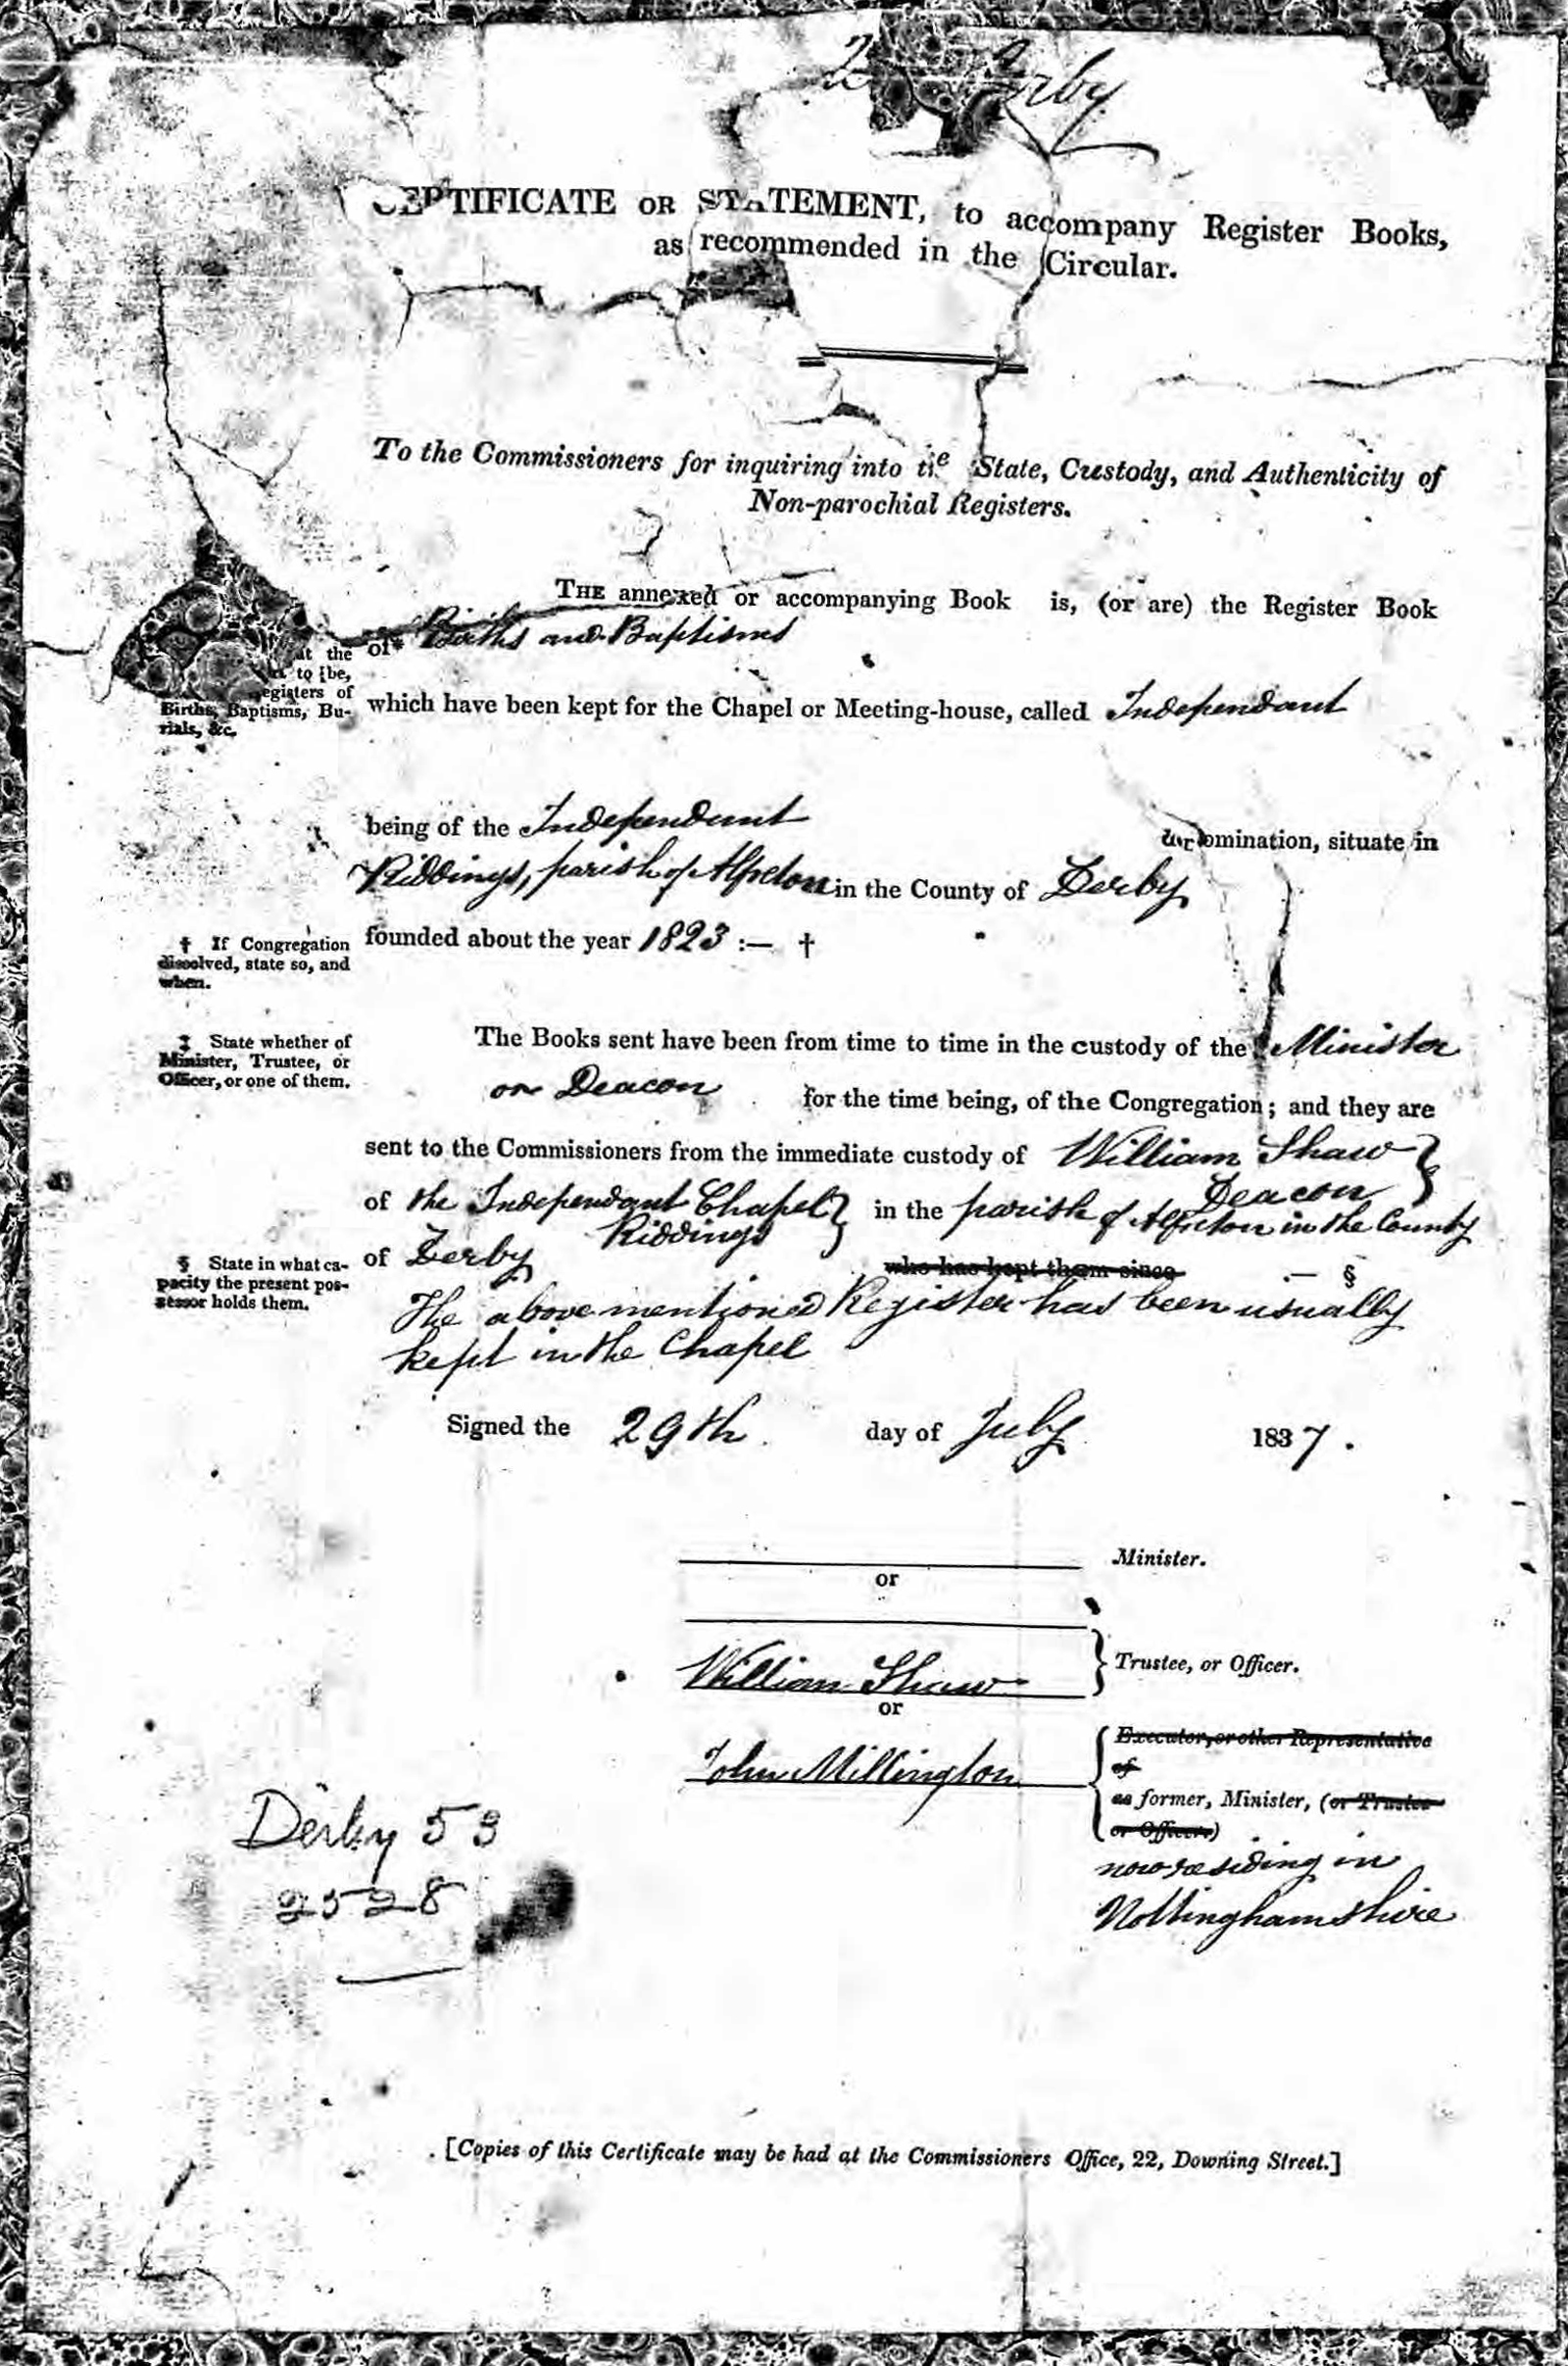 Derby
CERTIFICATE OR STATEMENT, to accompany Register Books,
as recommended in the Circular.
To the Commissioners for inquiring into the State, Custody, and Authenticity of
Non-parochial Registers.
THE annexed or accompanying Book is, (or are) the Register Book
of* Births and Baptisms
at the
to be,
egisters of
Births, Baptisms, Bu-
rials, &c.
which have been kept for the Chapel or Meeting-house, called Independant
being of the Independant denomination, situate in
Riddings, parish of Alfreton in the County of Derby
founded about the year 1823 :— †
† If Congregation
dissolved, state so, and
when.
‡ State whether of
Minister, Trustee, or
Officer, or one of them.
The Books sent have been from time to time in the custody of the ‡ Minister
or Deacon for the time being, of the Congregation; and they are
sent to the Commissioners from the immediate custody of William Shaw }
Deacon
of the Independant Chapel } in the parish of Alfreton in the County
Riddings
of Derby who has kept them since .— §
§ State in what ca-
pacity the present pos-
sessor holds them.
The above mentioned Register has been usually
kept in the Chapel
Signed the 29th day of July 1837.
Minister.
or
William Shaw } Trustee, or Officer.
or
John Millington { Executor, or other Representative
of
as former, Minister, (or Trustee
or Officer)
now residing in
Nottinghamshire
Derby 53
2528
[Copies of this Certificate may be had at the Commissioners Office, 22, Downing Street.]